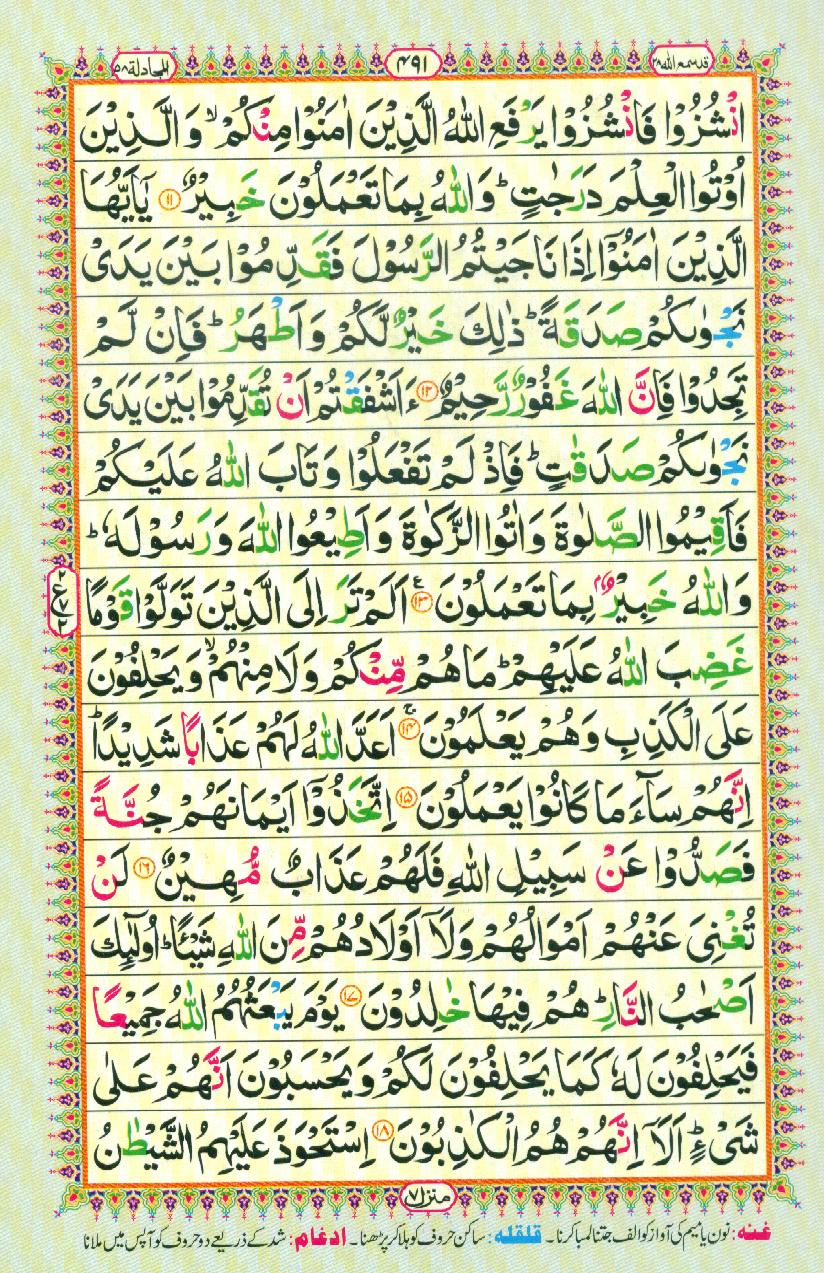 قد سمع الله ۲۸
۴۹۱
المجادلة ۵۸
انْشُزُوْا فَانْشُزُوْا يَرْفَعِ اللّٰهُ الَّذِيْنَ اٰمَنُوْا مِنْكُمْ ۙ وَ الَّذِيْنَ
اُوْتُوا الْعِلْمَ دَرَجٰتٍ ؕ وَ اللّٰهُ بِمَا تَعْمَلُوْنَ خَبِيْرٌ ۱۱ يٰۤاَيُّهَا
الَّذِيْنَ اٰمَنُوْۤا اِذَا نَاجَيْتُمُ الرَّسُوْلَ فَقَدِّمُوْا بَيْنَ يَدَيْ
نَجْوٰىكُمْ صَدَقَةً ؕ ذٰلِكَ خَيْرٌ لَّكُمْ وَ اَطْهَرُ ؕ فَاِنْ لَّمْ
تَجِدُوْا فَاِنَّ اللّٰهَ غَفُوْرٌ رَّحِيْمٌ ۱۲ ءَاَشْفَقْتُمْ اَنْ تُقَدِّمُوْا بَيْنَ يَدَيْ
نَجْوٰىكُمْ صَدَقٰتٍ ؕ فَاِذْ لَمْ تَفْعَلُوْا وَ تَابَ اللّٰهُ عَلَيْكُمْ
فَاَقِيْمُوا الصَّلٰوةَ وَ اٰتُوا الزَّكٰوةَ وَ اَطِيْعُوا اللّٰهَ وَ رَسُوْلَهٗ ؕ
وَ اللّٰهُ خَبِيْرٌۢ بِمَا تَعْمَلُوْنَ ۱۳ ع اَلَمْ تَرَ اِلَى الَّذِيْنَ تَوَلَّوْا قَوْمًا
غَضِبَ اللّٰهُ عَلَيْهِمْ ؕ مَا هُمْ مِّنْكُمْ وَ لَا مِنْهُمْ ۙ وَ يَحْلِفُوْنَ
عَلَى الْكَذِبِ وَ هُمْ يَعْلَمُوْنَ ۱۴ اَعَدَّ اللّٰهُ لَهُمْ عَذَابًا شَدِيْدًا ؕ
اِنَّهُمْ سَآءَ مَا كَانُوْا يَعْمَلُوْنَ ۱۵ اِتَّخَذُوْۤا اَيْمَانَهُمْ جُنَّةً
فَصَدُّوْا عَنْ سَبِيْلِ اللّٰهِ فَلَهُمْ عَذَابٌ مُّهِيْنٌ ۱۶ لَنْ
تُغْنِيَ عَنْهُمْ اَمْوَالُهُمْ وَ لَاۤ اَوْلَادُهُمْ مِّنَ اللّٰهِ شَيْـًٔا ؕ اُولٰٓئِكَ
اَصْحٰبُ النَّارِ ؕ هُمْ فِيْهَا خٰلِدُوْنَ ۱۷ يَوْمَ يَبْعَثُهُمُ اللّٰهُ جَمِيْعًا
فَيَحْلِفُوْنَ لَهٗ كَمَا يَحْلِفُوْنَ لَكُمْ وَ يَحْسَبُوْنَ اَنَّهُمْ عَلٰى
شَيْءٍ ؕ اَلَاۤ اِنَّهُمْ هُمُ الْكٰذِبُوْنَ ۱۸ اِسْتَحْوَذَ عَلَيْهِمُ الشَّيْطٰنُ
منزل ۷
غنہ: نون یا میم کی آواز کو الف جتنا لمبا کرنا۔ قلقلہ: ساکن حروف کو ہلا کر پڑھنا۔ ادغام: شد کے ذریعے دو حروف کو آپس میں ملانا